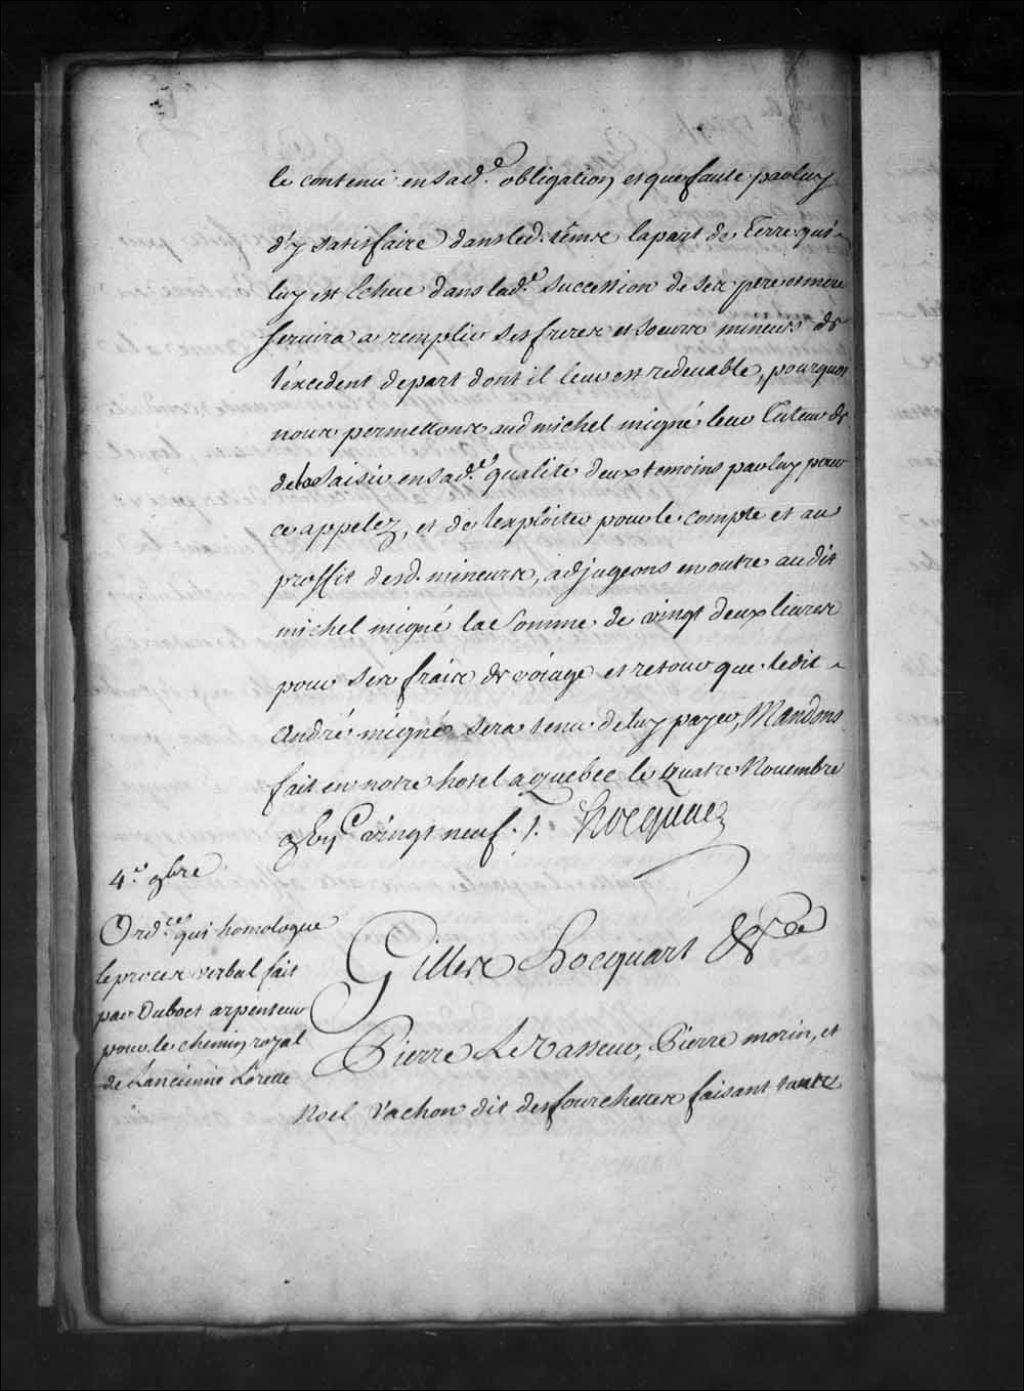 le contenu en sad.e obligation, et que faute par luy
d'y satisfaire dans led. tems la part de Terre qui
luy est Echue dans lad.e succession de ses pere et mere
servira a remplir ses freres et soeurs mineurs de
l'excedent de part dont il leur est redevable, pourquoy
nous permettons aud michel migné leur Tuteur de
de la saisir en sad.e qualité deux temoins par luy pour
ce appelez, et de l'exploiter pour le compte et au
proffit desd. mineurs, adjugeons en outre audit
michel migné la Somme de vingt deux livres
pour ses frais de voiage et retour que ledit
André migné sera tenu de luy payer, Mandons
fait en notre hotel a quebec le Quatre Novembre
vingt neuf. /. hocquart
4.e 9bre
Ord.ce qui homologue
le procès verbal fait
par Duboct arpenteur
pour le chemin royal
de Lancienne Lorette
Gilles hocquart &ca
Pierre Le Vasseur, Pierre morin, et
Noel Vachon dit desfourchettes faisant tant